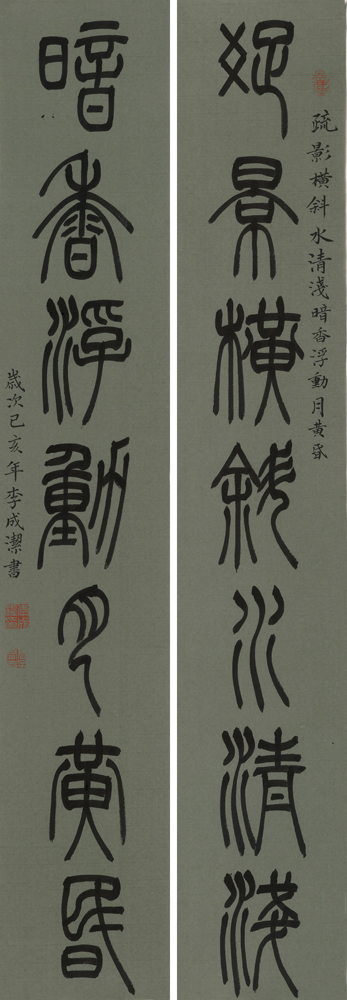 疏影橫斜水清淺暗香浮動月黃昏
疏景橫斜水清淺
暗香浮動月黃昏
歲次己亥年李成潔書